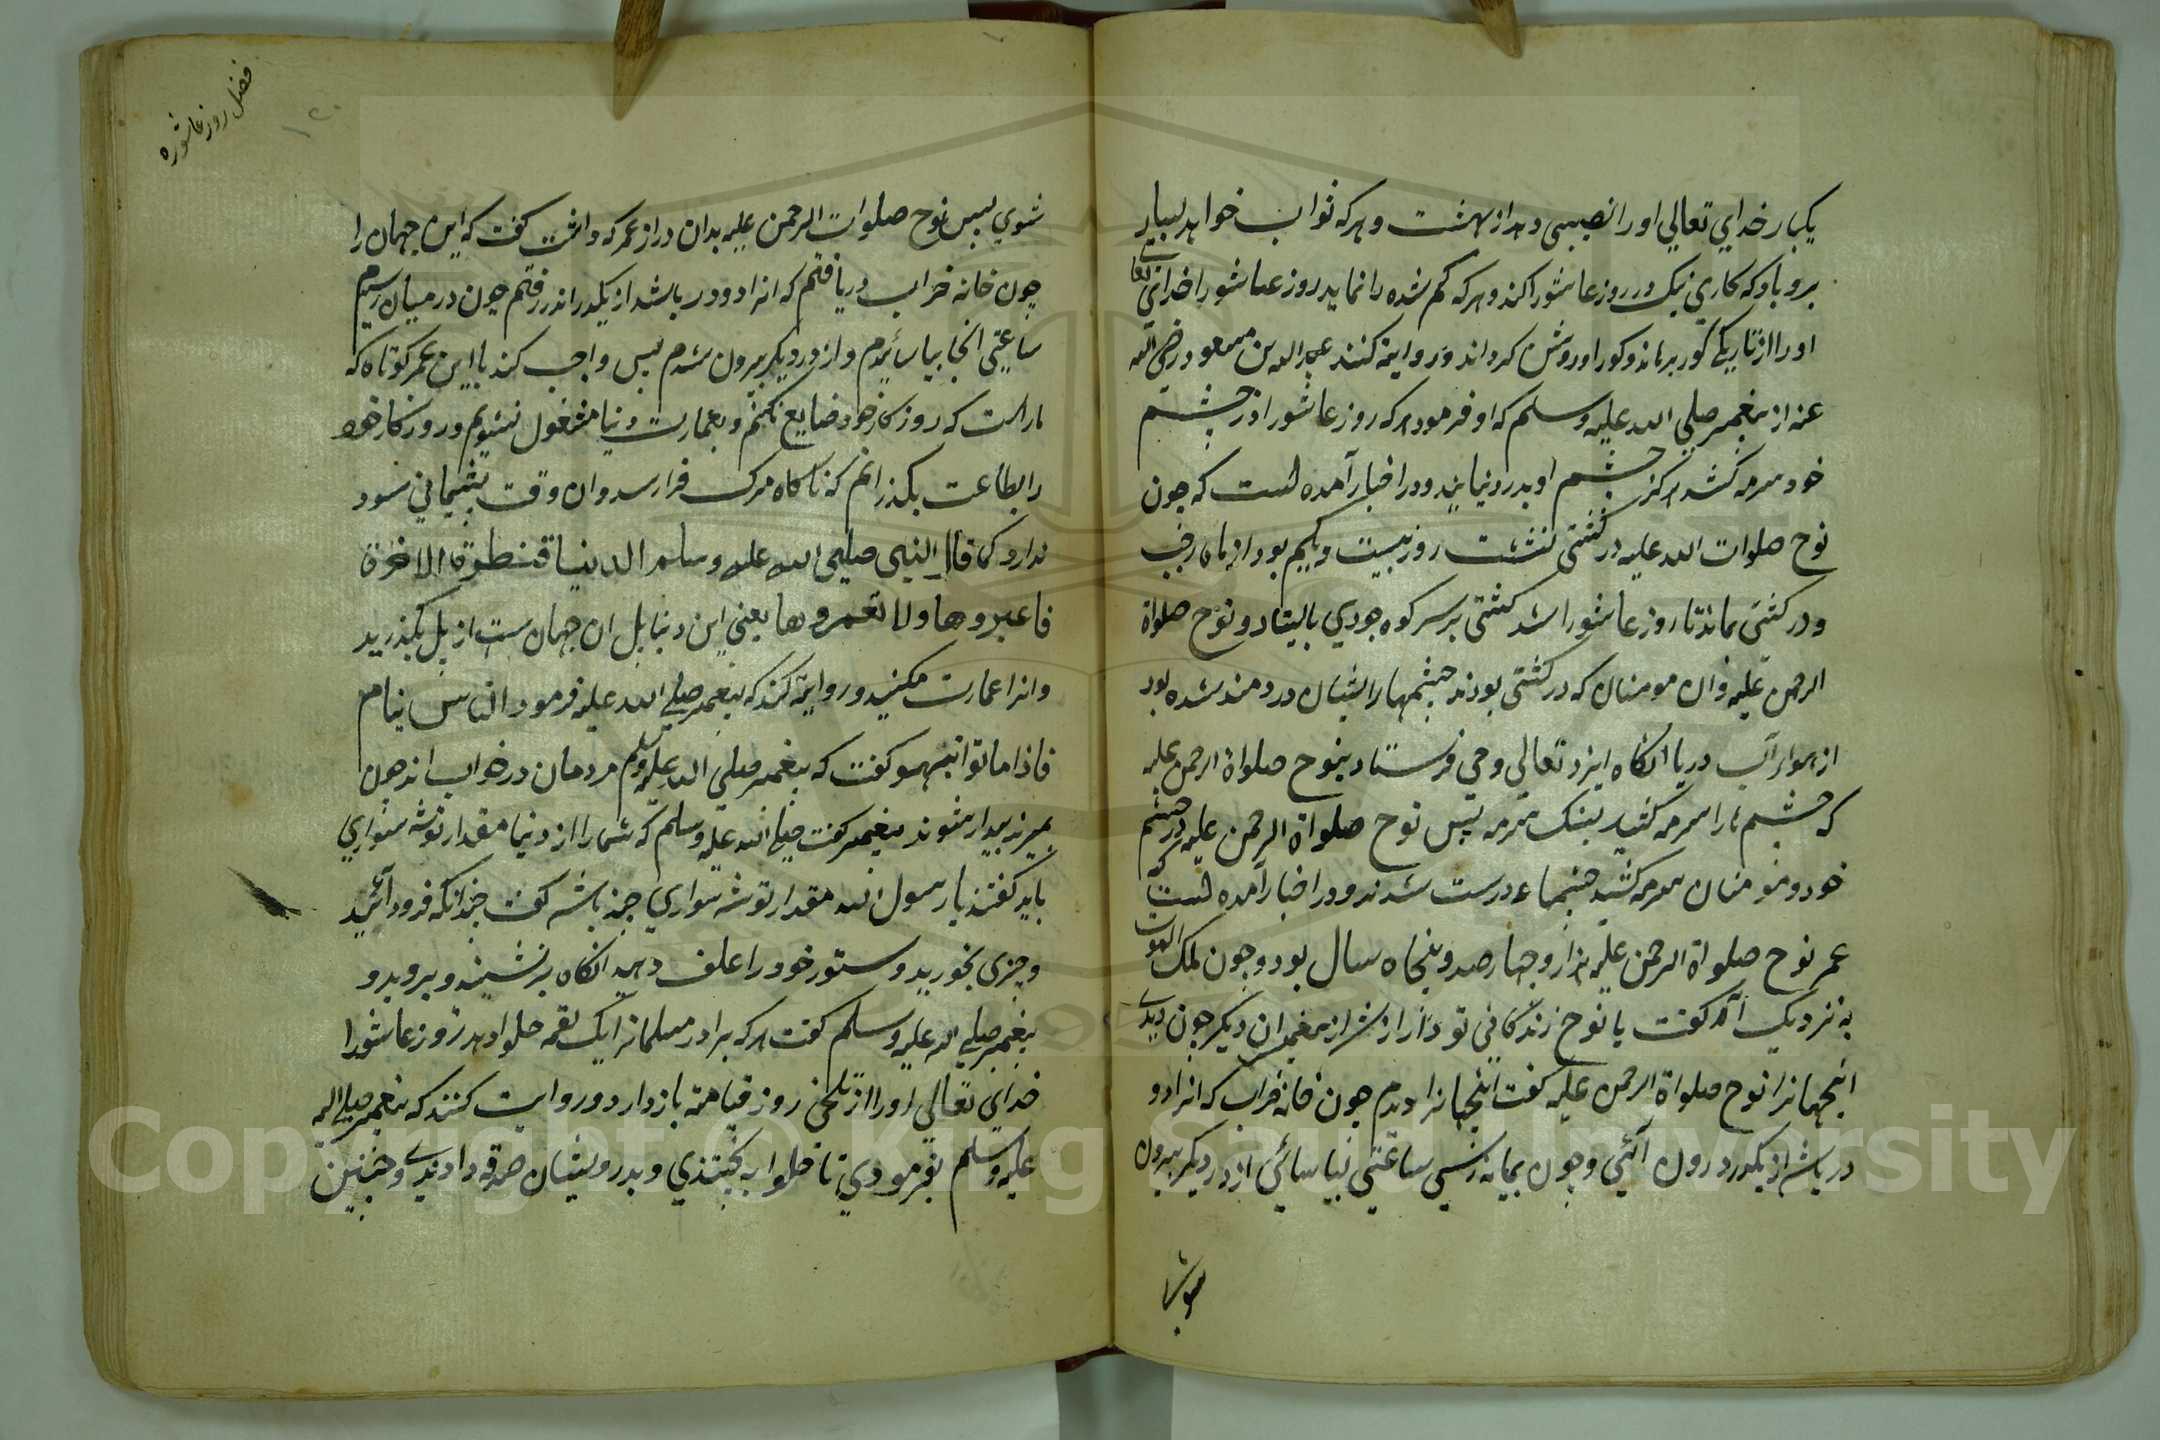 یکبار خدای تعالی اورا نصیبی دهد از بهشت و هرکه ثواب خواهد بسیار
برو بادکه کاری نیک در روز عاشورا کند و هرکه کم شده را نماید روز عاشورا خدای تعا
اورا از تاریکی کور برهاند و کور اورا روشن کرداند و روایة کنند عبدالله بن مسعود رضی الله
عنه از پیغمبر صلی الله علیه وسلم که او فرمود هرکه روز عاشورا در چشم
خود سرمه کشد هرکز چشم او بدرد نیاید و در اخبار آمده است که چون
نوح صلوات الله علیه در کشتی نشست روز بیست ویکم بود از ماه رجب
و در کشتی بماند تا روز عاشورا شد کشتی بر سر کوه جودی بایستاد و نوح صلواة
الرحمن علیه و ان مومنان که در کشتی بودند چشمهارا ایشان دردمند شده بود
از هوا و آب دریا انکاه ایزد تعالی وحی فرستاد بنوح صلواة الرحمن علیه
که چشم را سرمه کنید بسنک سرمه پس نوح صلواة الرحمن علیه در چشم
خود و مومنان سرمه کشید چشمهاء درست شدند و در اخبار آمده است که
عمر نوح صلواة الرحمن علیه هزار و چهارصد و پنجاه سال بود و چون ملک الموت
به نزدیک آمد کفت یا نوح زندکانی تو دراز از پیغمبران دیکر چون دیدی
اینجهانرا نوح صلواة الرحمن علیه کفت اینجهانرا دیدم چون خانه خراب که انرا دو
در باشد از یکدر درون آئی و چون بمیانه رسی ساعتی بیاسائی از در دیکر بیرون
شوی
فضل روز عاشوره
۱۲۰
شوی پس نوح صلوات الرحمن علیه بدان دراز عمر که داشت کفت که این جهان را
چون خانه خراب دریافتم که انرا دو در باشد از یکدر اندر رفتم چون در میان رسیدم
ساعتی انجا بیاسائیدم و از در دیکر بیرون شدم پس واجب کند با این عمر کوتاه که
ماراست که روزکار خود ضایع نکنم و بعمارت دنیا مشغول نشویم و روزکار خود
را بطاعت بکذرانم که ناکاه مرک فرا رسد و ان وقت پشیمانی سود
ندارد کما قال النبی صلی الله علیه وسلم الدنیا قنطرة الاخرة
فاعبروها ولا تعمروها یعنی این دنیا پل ان جهان ست از پل بکذرید
و انرا عمارت مکنید و روایة کنند که پیغمبر صلی الله علیه فرمود الناس نیام
فاذا ماتوا انتبهوا کفت که پیغمبر صلی الله علیه وسلم مردمان در خواب اند چون
بمیرند بیدار شوند پیغمبر کفت صلی الله علیه وسلم که شمارا از دنیا مقدار توشه سواری
باید کفتند یا رسول الله مقدار توشه سواری چند باشد کفت چندانکه فرود آئید
و چیزی بخورید و ستور خود را علف دهید انکاه برنشیند و بروید و
پیغمبر صلی الله علیه وسلم کفت هرکه برادر مسلمانرا یک لقمه حلوا دهد روز عاشورا
خدای تعالی اورا از تلخی روز قیامة باز دارد و روایت کنند که پیغمبر صلی الله
علیه وسلم بفرمودی تا حلوا بپختندی و بدرویشان صدقه دادندی و چنین
Copyright © King Saud University